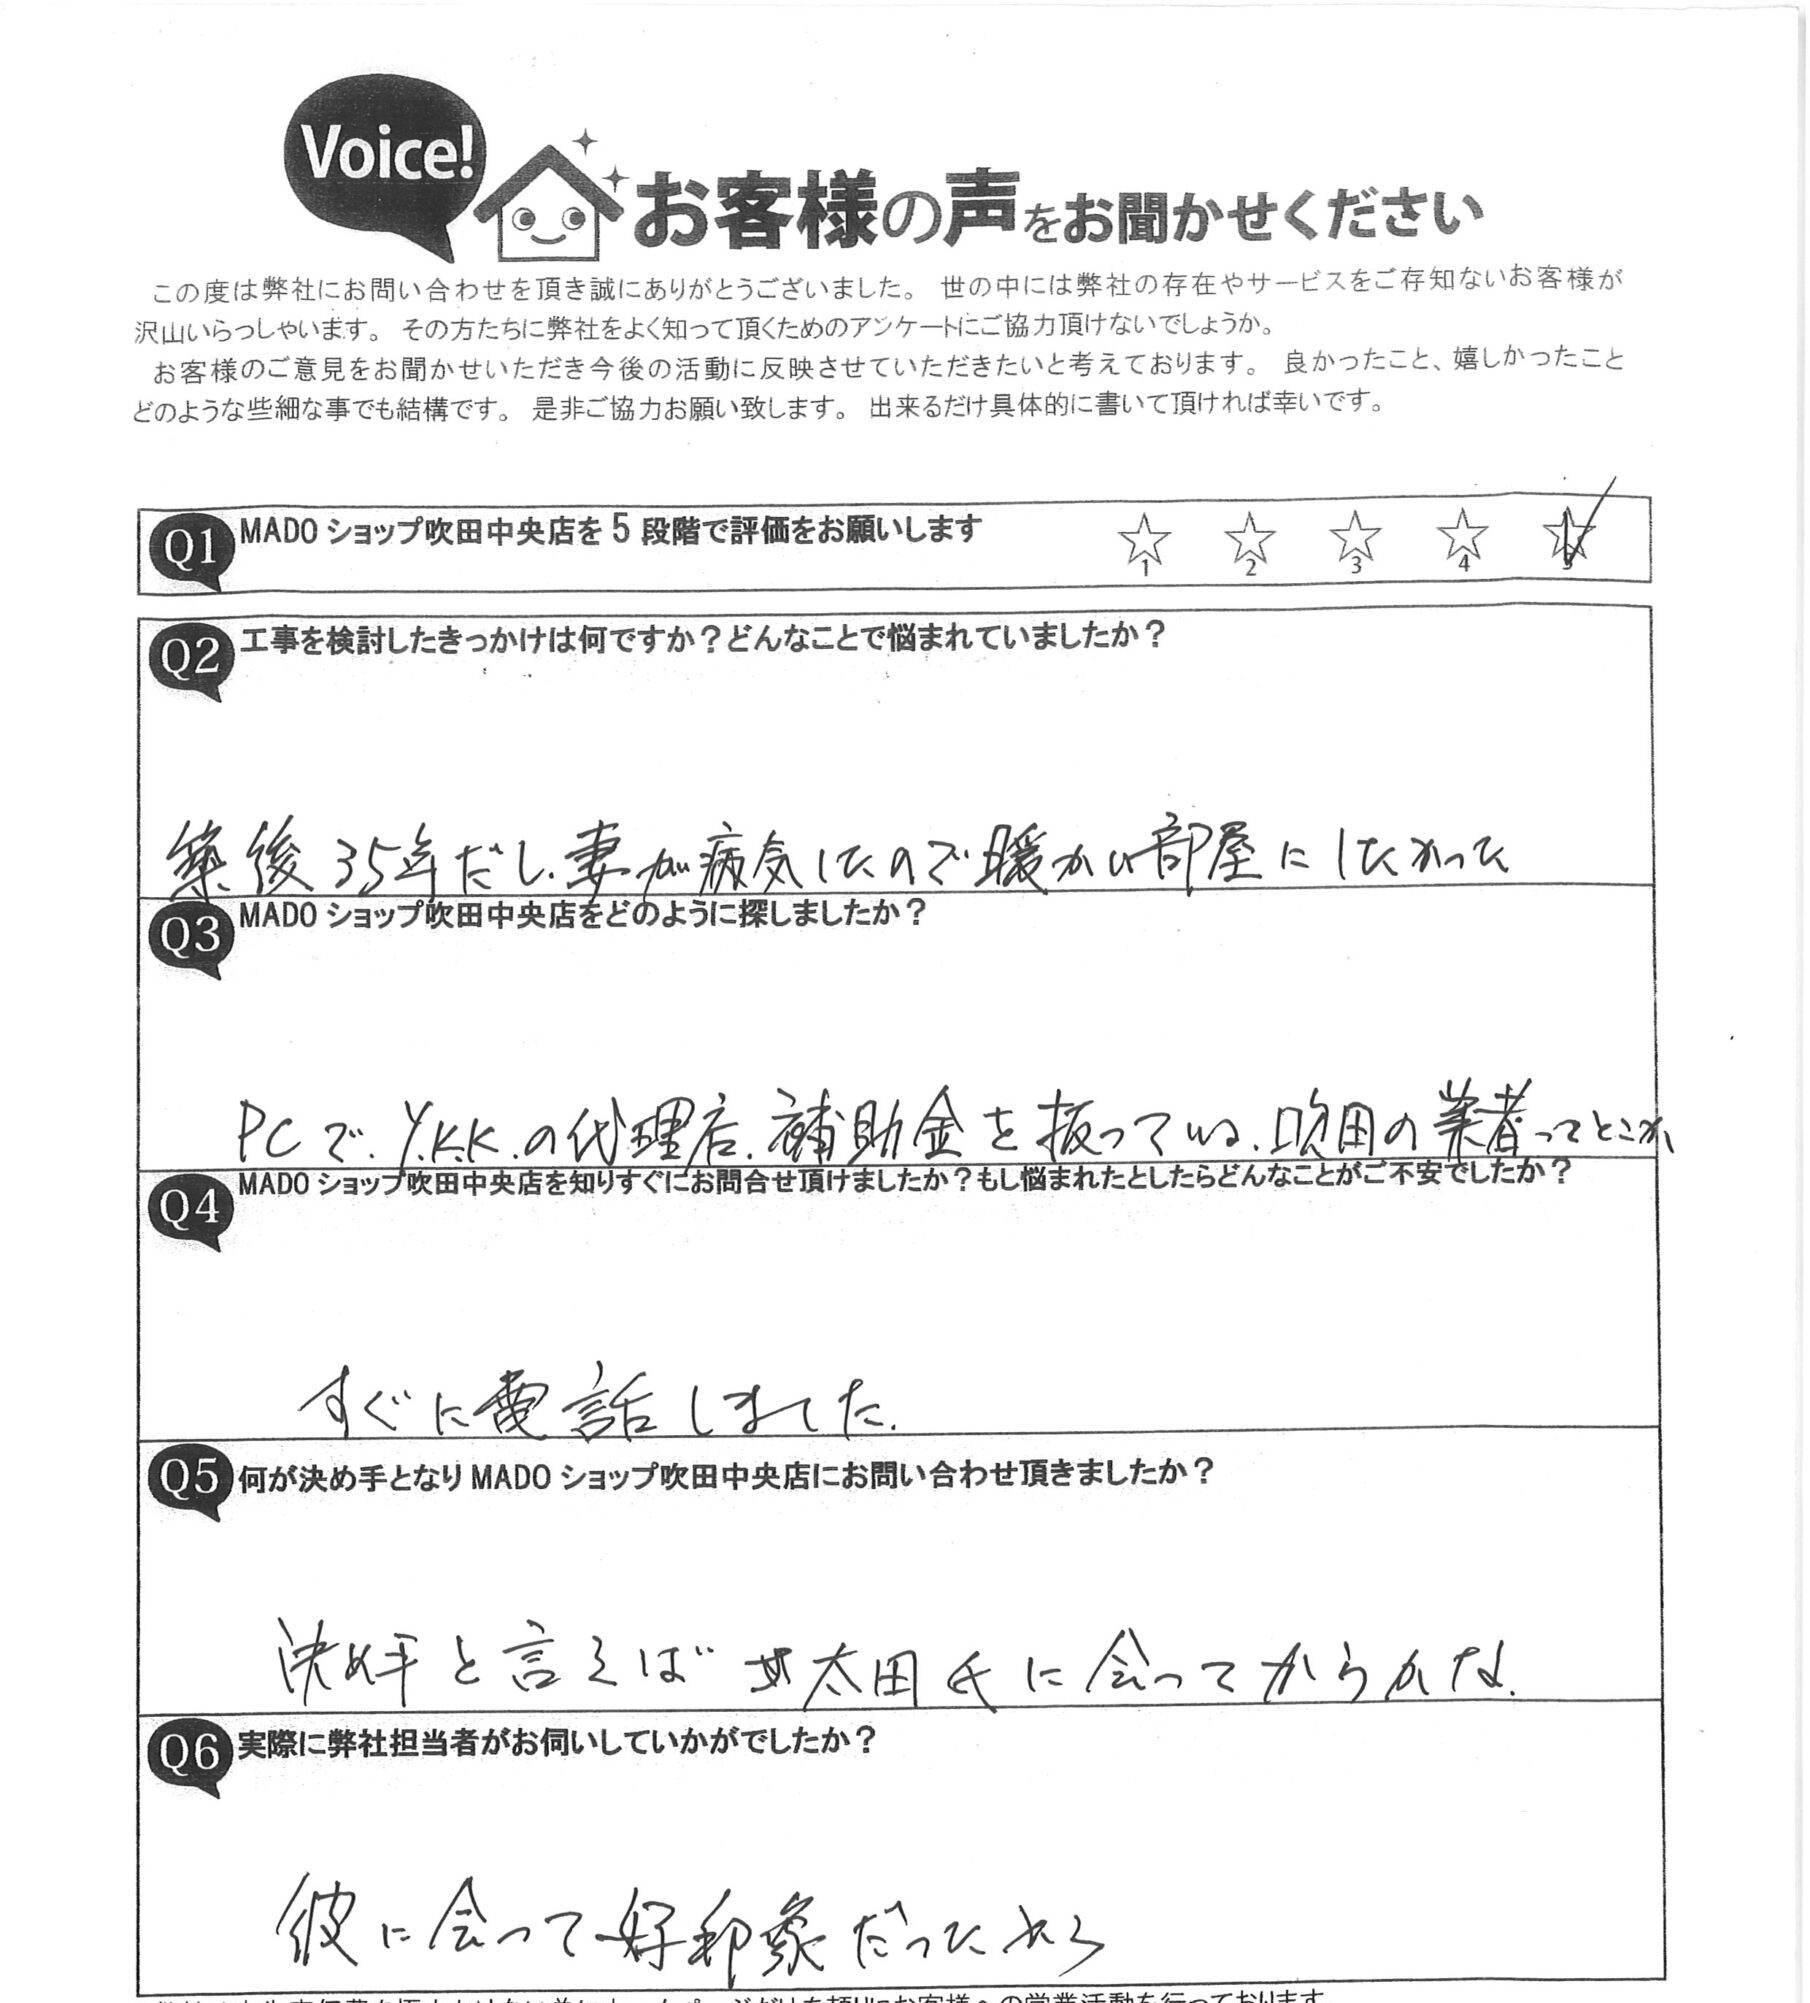 Voice!
お客様の声をお聞かせください
この度は弊社にお問い合わせを頂き誠にありがとうございました。 世の中には弊社の存在やサービスをご存知ないお客様が
沢山いらっしゃいます。 その方たちに弊社をよく知って頂くためのアンケートにご協力頂けないでしょうか。
お客様のご意見をお聞かせいただき今後の活動に反映させていただきたいと考えております。 良かったこと、嬉しかったこと
どのような些細な事でも結構です。 是非ご協力お願い致します。 出来るだけ具体的に書いて頂ければ幸いです。
Q1 MADOショップ吹田中央店を5段階で評価をお願いします
1 2 3 4 5
Q2 工事を検討したきっかけは何ですか？どんなことで悩まれていましたか？
築後35年だし、妻が病気したので暖かい部屋にしたかった
Q3 MADOショップ吹田中央店をどのように探しましたか？
PCで、Y.K.K.の代理店、補助金を扱っている、吹田の業者ってとこか、
Q4 MADOショップ吹田中央店を知りすぐにお問合せ頂けましたか？もし悩まれたとしたらどんなことがご不安でしたか？
すぐに電話しました.
Q5 何が決め手となりMADOショップ吹田中央店にお問い合わせ頂きましたか？
決め手と言えば 太田氏に会ってからかな.
Q6 実際に弊社担当者がお伺いしていかがでしたか？
彼に会って好印象だったから